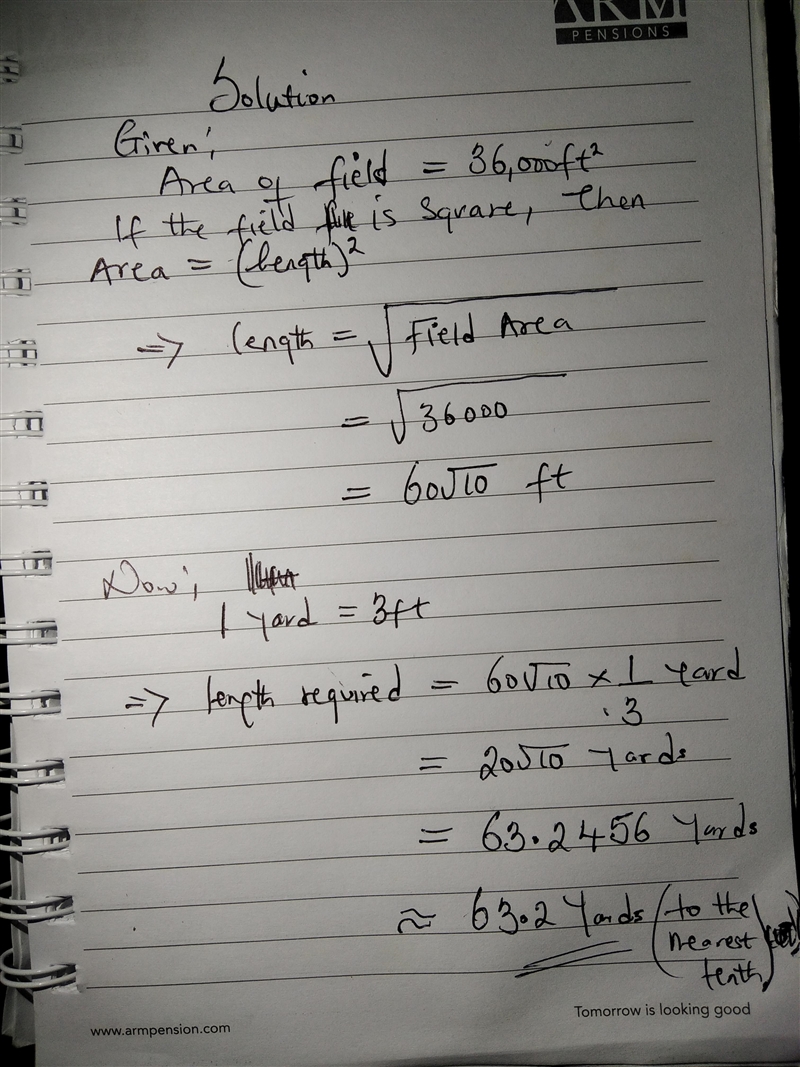 ARM
PENSIONS
Solution
Given;
Area of field = 36,000ft²
If the field is square, then
Area = (length)²
=> length = √Field Area
= √36000
= 60√10 ft
Now;
1 yard = 3ft
=> length required = 60√10 × 1/3 Yard
= 20√10 Yards
= 63.2456 Yards
≈ 63.2 Yards (to the nearest tenth)
www.armpension.com
Tomorrow is looking good